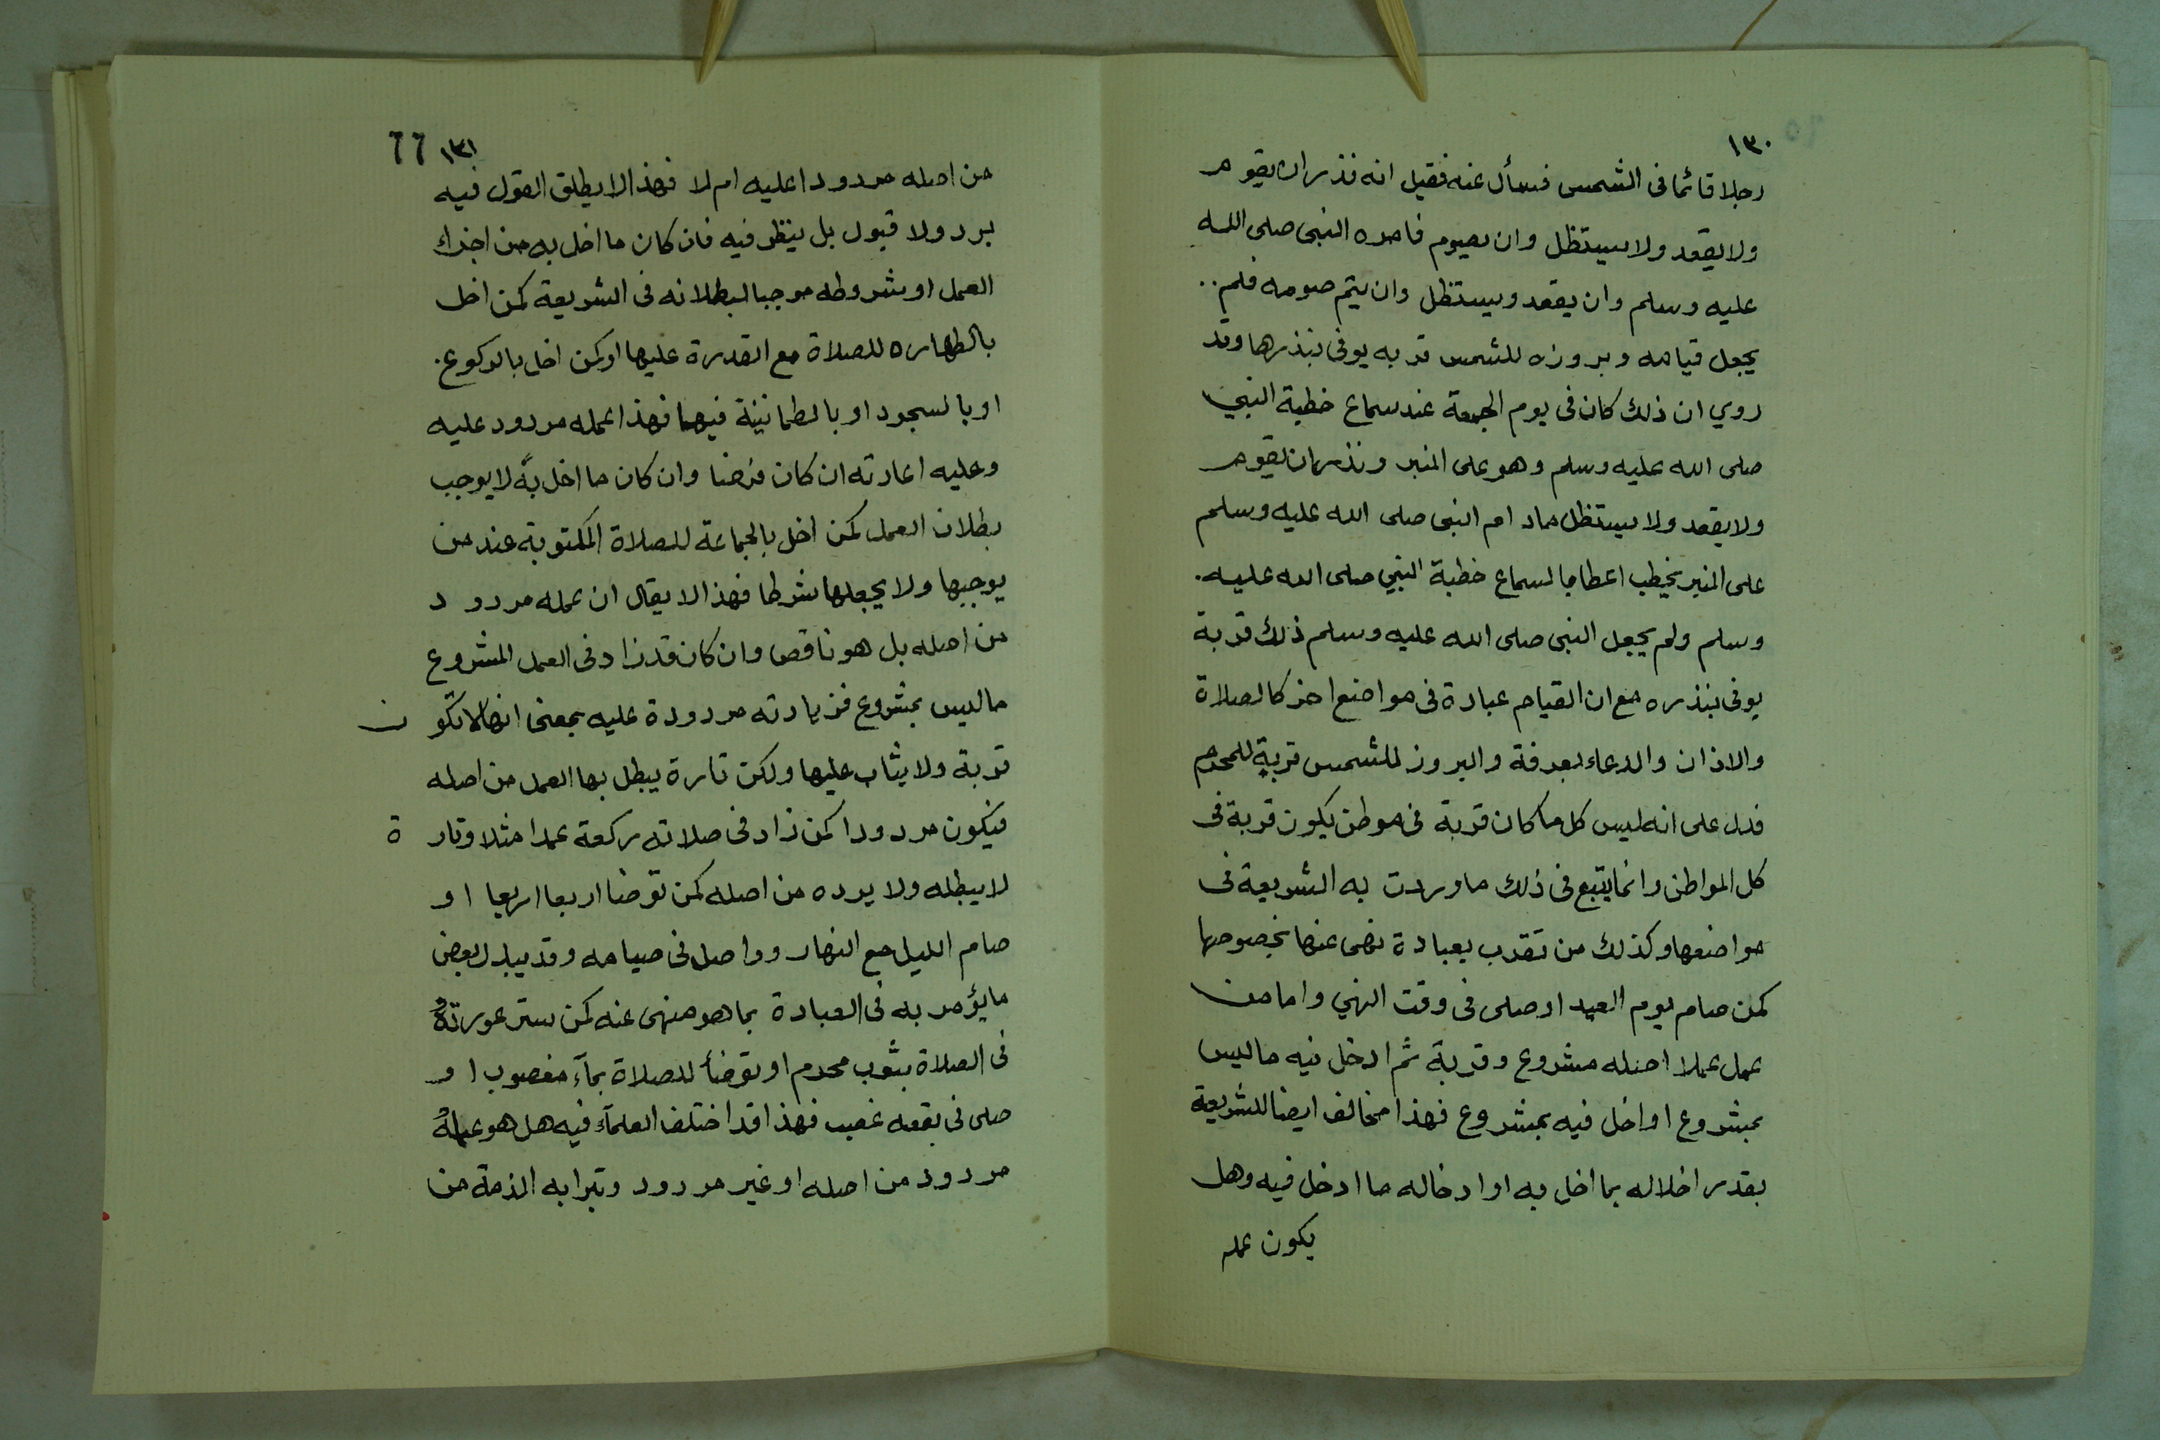 ١٣٠
رجلا قائما فى الشمس فسأل عنه فقيل انه نذر ان يقوم
ولا يقعد ولا يستظل وان يصوم فامره النبى صلى الله
عليه وسلم وان يقعد ويستظل وان يتم صومه فلم..
يجعل قيامه وبروزه للشمس قربه يوفى بنذرها وقد
روي ان ذلك كان فى يوم الجمعة عند سماع خطبة النبي
صلى الله عليه وسلم وهو على المنبر ونذر ان يقوم
ولا يقعد ولا يستظل ماد ام النبى صلى الله عليه وسلم
على المنبر يخطب اعظاما لسماع خطبة النبي صلى الله عليه.
وسلم ولم يجعل النبى صلى الله عليه وسلم ذلك قربة
يوفى بنذره مع ان القيام عبادة فى مواضع اخر كالصلاة
والاذان والدعاء بعرفة والبروز للشمس قربة للمحرم
فدل على انه ليس كل ما كان قربة فى موطن يكون قربة فى
كل المواطن وانما يتبع فى ذلك ما وردت به الشريعة فى
مواضعها وكذلك من تقرب بعبادة نهى عنها بخصوصها
كمن صام يوم العيد او صلى فى وقت النهي واما من
عمل عملا اصله مشروع وقربة ثم ادخل فيه ما ليس
بمشروع او اخل فيه بمشروع فهذا مخالف ايضا للشريعة
بقدر اخلاله بما اخل به او ادخاله ما ادخل فيه وهل
يكون عمله
١٣١ 66
من اصله مردودا عليه ام لا فهذا لا يطلق القول فيه
برد ولا قبول بل ينظر فيه فان كان ما اخل به من اجزاء
العمل او شروطه موجبا لبطلانه فى الشريعة كمن اخل
بالطهاره للصلاة مع القدرة عليها او كمن اخل بالركوع.
او بالسجود او بالطمانينة فيهما فهذا عمله مردود عليه
وعليه اعادته ان كان فرضا وان كان ما اخل به لا يوجب
بطلان العمل كمن اخل بالجماعة للصلاة المكتوبة عند من
يوجبها ولا يجعلها شرطا فهذا لا يقال ان عمله مردو د
من اصله بل هو ناقص وان كان قد زاد فى العمل المشروع
ما ليس بمشروع فزيادته مردودة عليه بمعنى انها لا تكو ن
قربة ولا يثاب عليها ولكن تارة يبطل بها العمل من اصله
فيكون مردودا كمن زاد فى صلاته ركعة عمدا مثلا وتار ة
لا يبطله ولا يرده من اصله كمن توضا اربعا اربعا او
صام الليل مع النهار وواصل فى صيامه وقد يبدل بعض
ما يؤمر به فى العبادة بما هو منهى عنه كمن ستر عورته
فى الصلاة بثوب محرم او توضأ للصلاة بمآء مغصوب او
صلى فى بقعه غصب فهذا قد اختلف العلمآء فيه هل هو عمله
مردود من اصله او غير مردود وتبرا به الذمة من